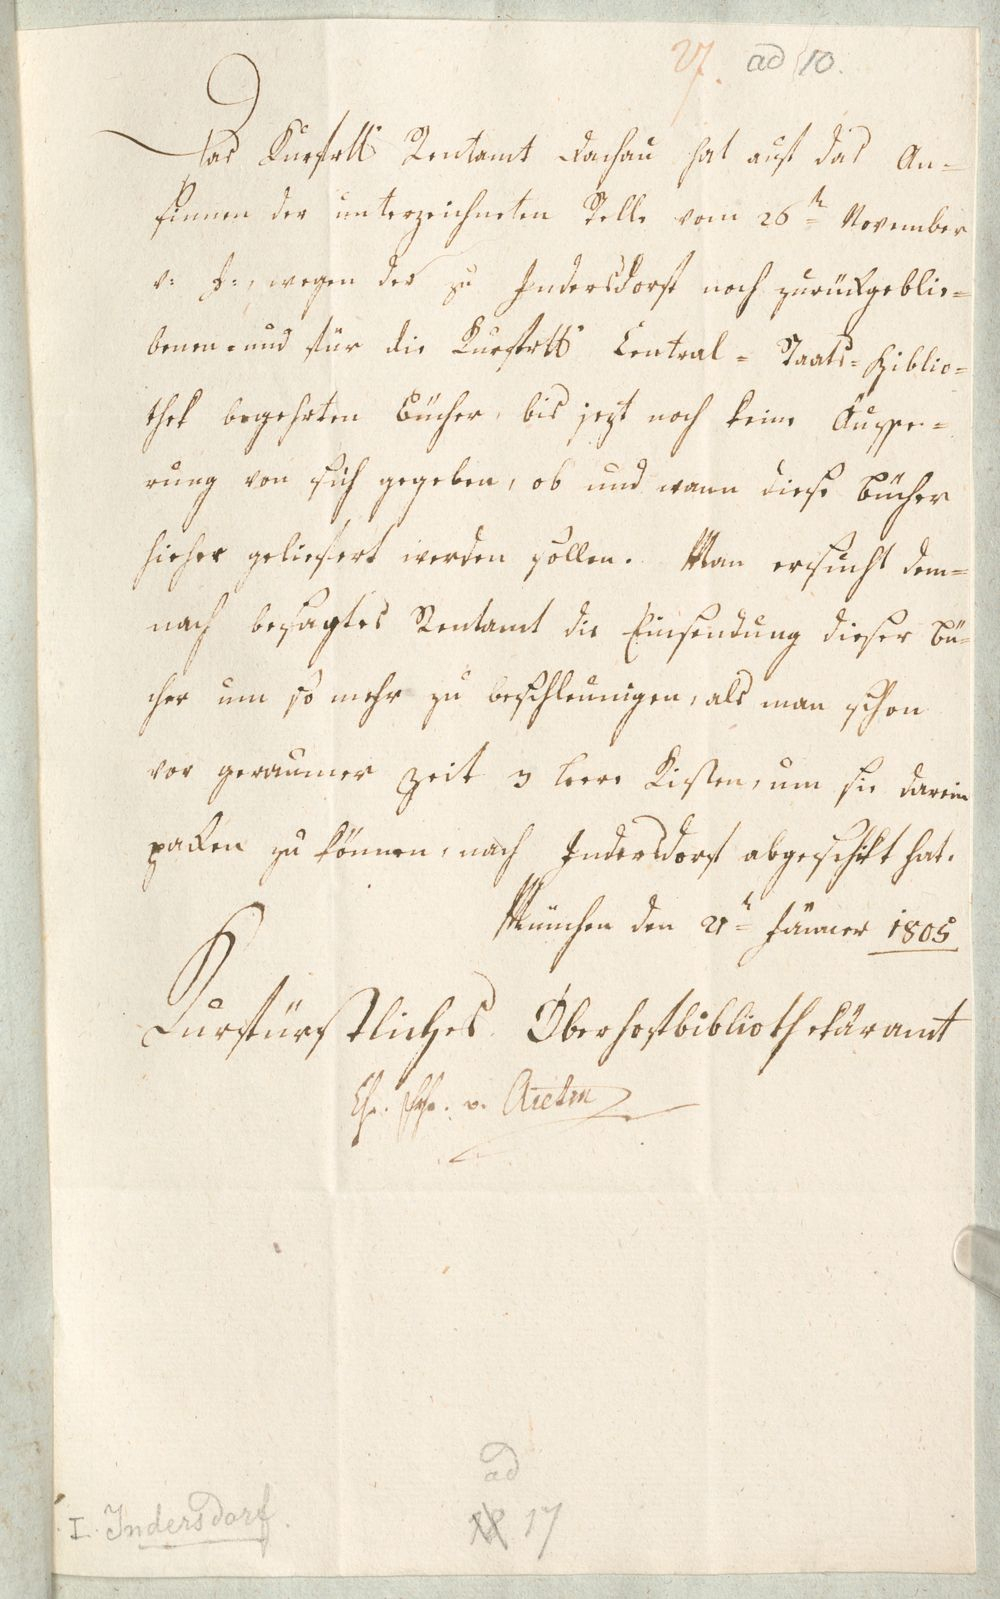 ad 10.
Das Kurfrtl. Rentamt Dachau hat auf das An=
sinnen der unterzeichneten Stelle vom 26ten November
v: J:, wegen der zu Indersdorf noch zurückgeblie=
benen und für die Kurfrtl. Central=Staats=Biblio=
thek begehrten Bücher, bis jezt noch keine Äusse=
rung von sich gegeben, ob und wann diese Bücher
hieher geliefert werden sollen. Man ersucht dem=
nach besagtes Rentamt die Einsendung dieser Bü=
cher um so mehr zu beschleunigen, als man schon
vor geraumer Zeit 3 leere Kisten, um sie darein
packen zu können, nach Indersdorf abgeschikt hat.
München den 21ten Jänner 1805
Kurfürstliches Oberhofbibliothekäramt
v. Aretin
ad
17
I. Indersdorf.